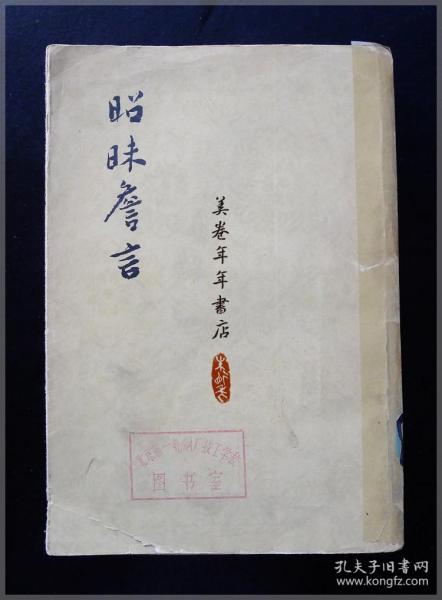 昭昧詹言
美卷年年書店
图书室
孔夫子旧书网
www.kongfz.com